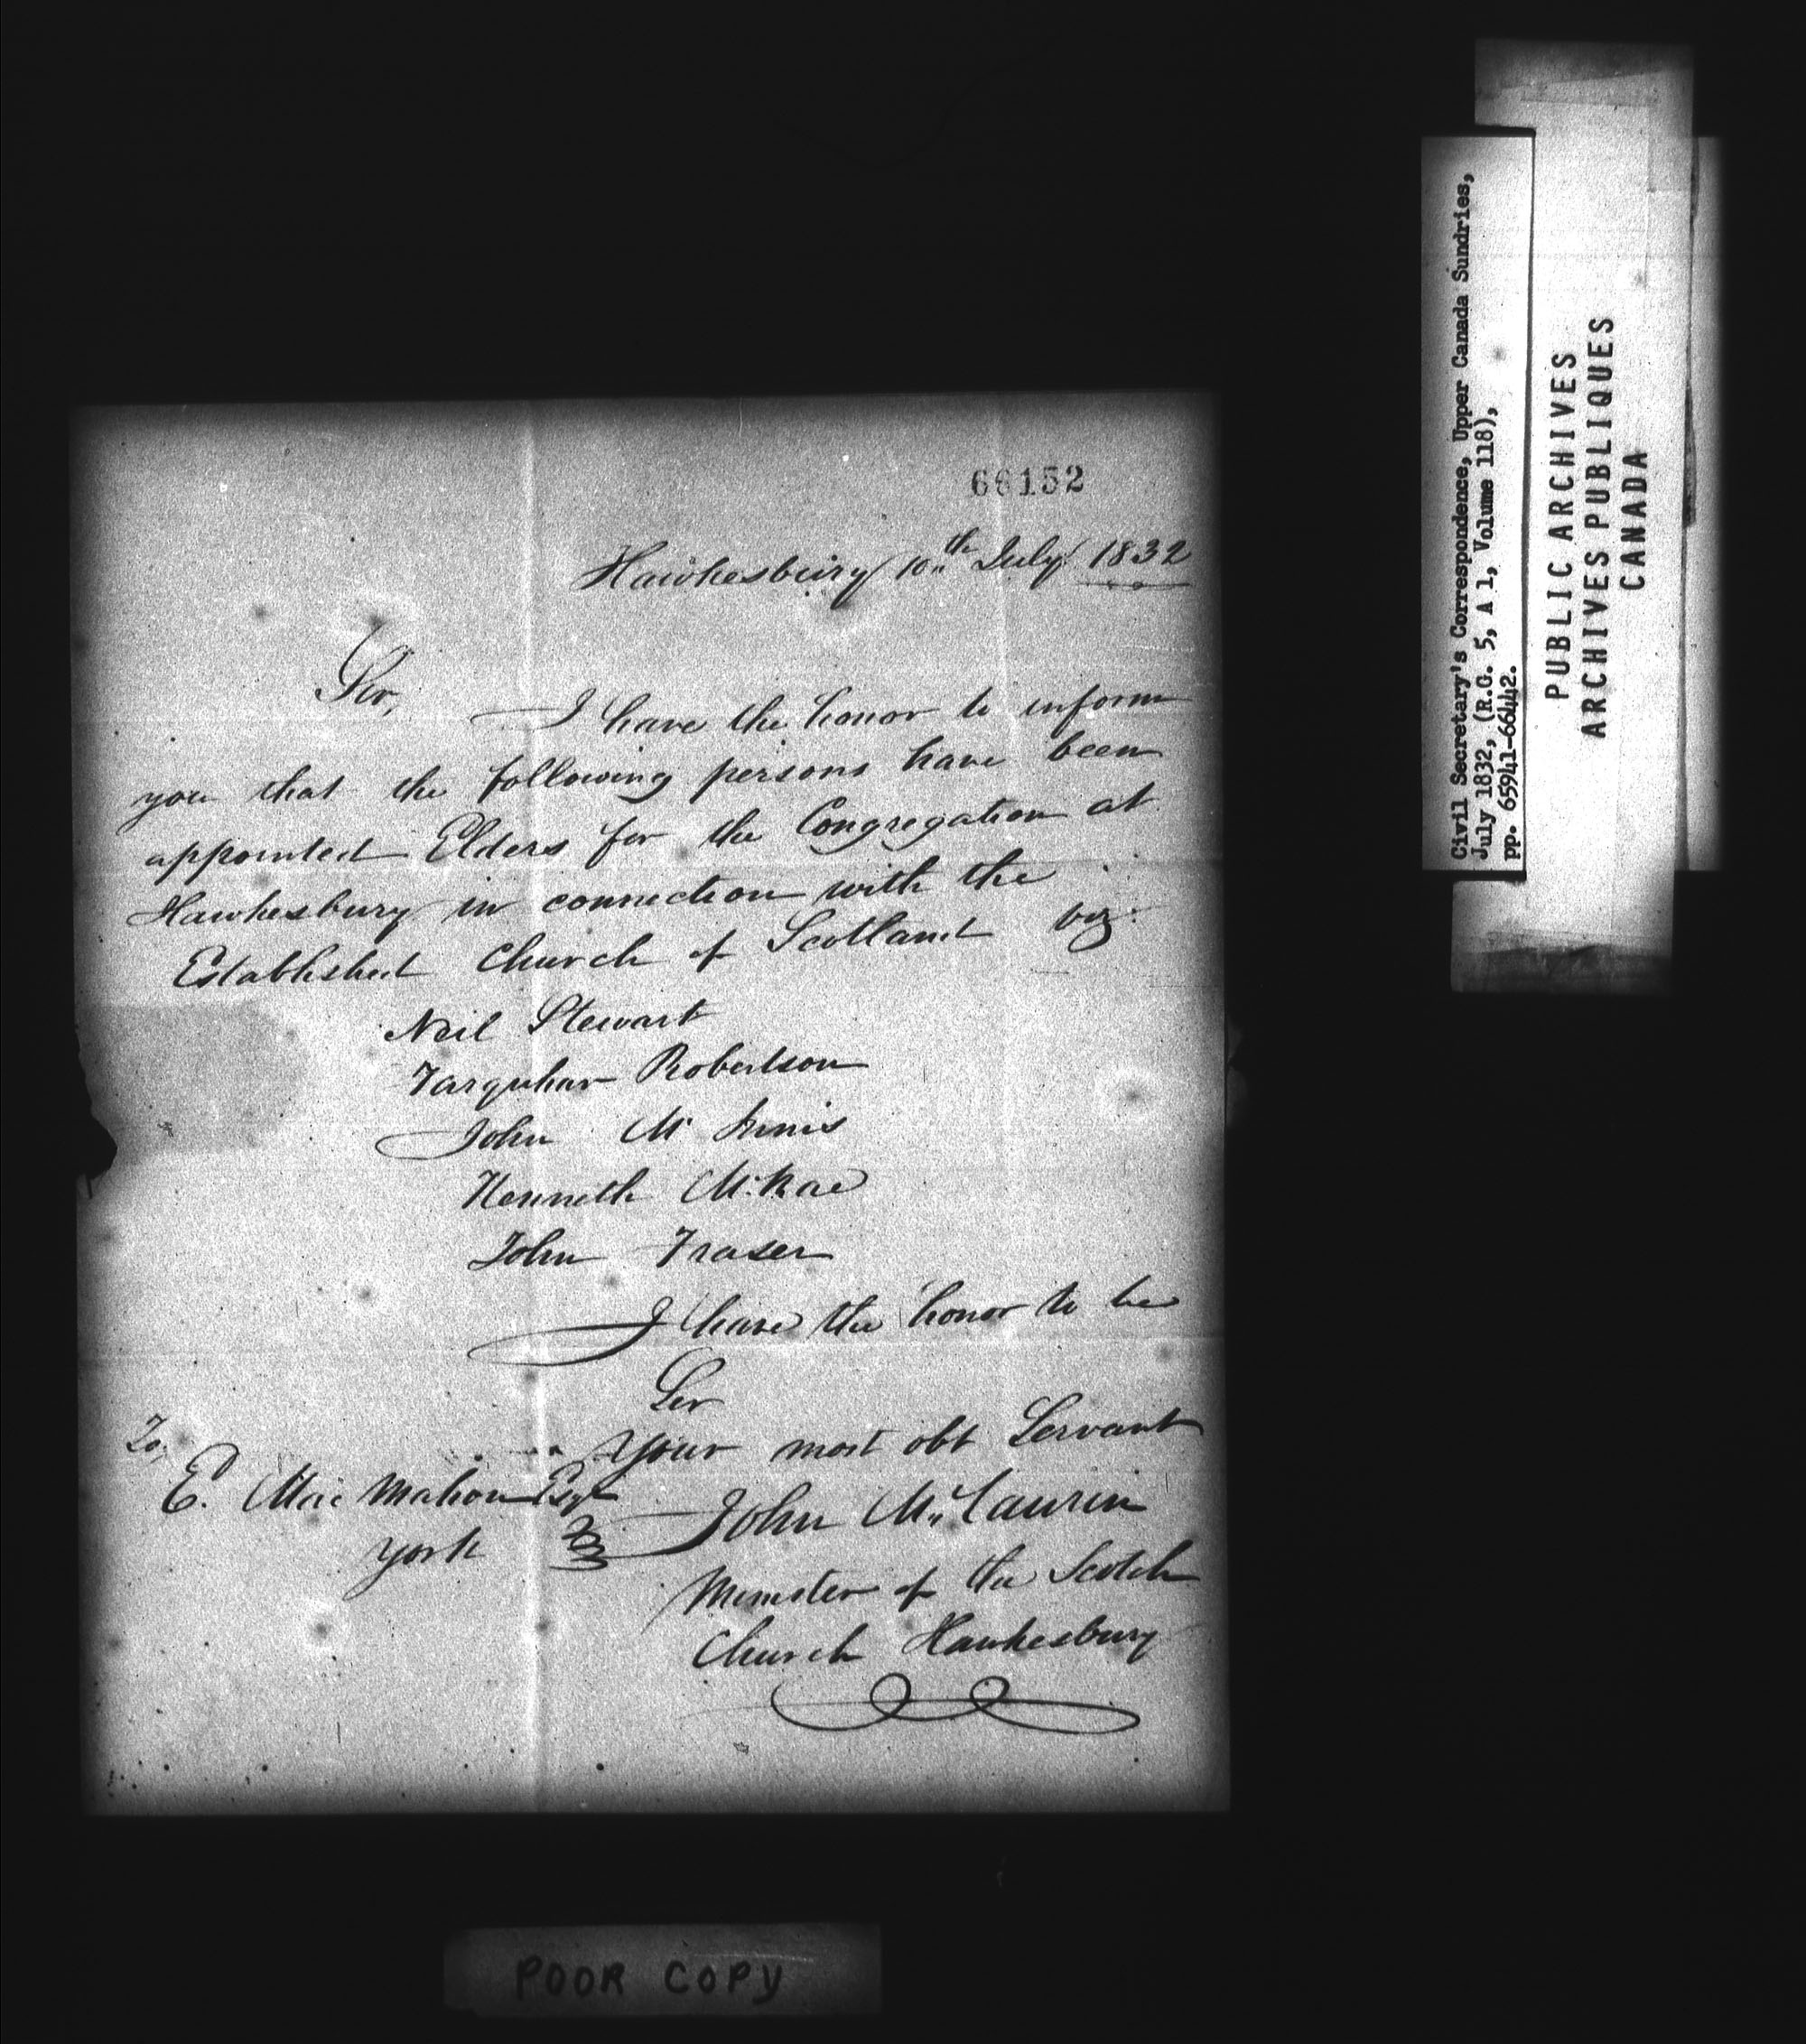 66152
Hawkesbury 10th July 1832
Sir,
I have the honor to inform
you that the following persons have been
appointed Elders for the Congregation at
Hawkesbury in connection with the
Established Church of Scotland viz:
Neil Stewart
Farquhar Robertson
John Mc Innis
Kenneth McRae
John Fraser
I have the honor to be
Sir
Your most obt Servant
John McLaurin
Minister of the Scotch
Church Hawkesbury
To,
E. Mac Mahon Esqr
York
Civil Secretary's Correspondence, Upper Canada Sundries,
July 1832, (R.G. 5, A 1, Volume 118),
pp. 65941-66442.
PUBLIC ARCHIVES
ARCHIVES PUBLIQUES
CANADA
POOR COPY